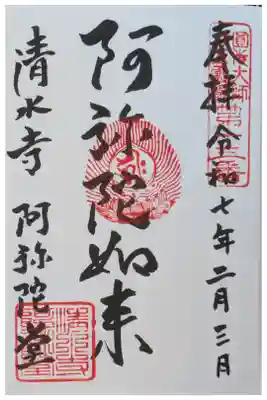 奉拝 令和七年二月三日
阿弥陀如来
清水寺 阿弥陀堂